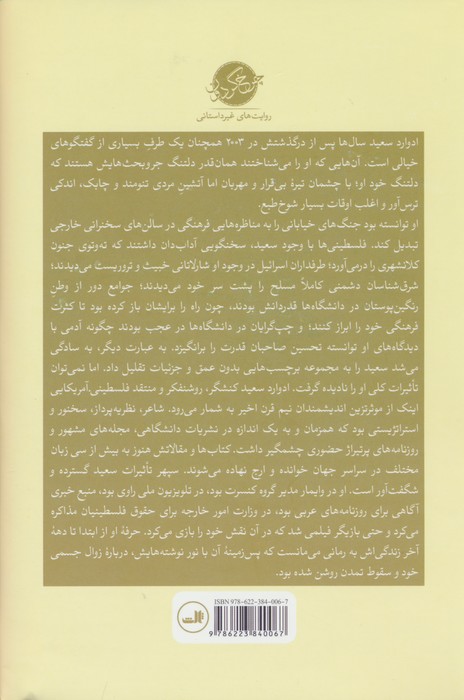 روایت‌های غیرداستانی
ادوارد سعید سال‌ها پس از درگذشتش در ۲۰۰۳ همچنان یک طرفِ بسیاری از گفتگوهای
خیالی است. آن‌هایی که او را می‌شناختند همان‌قدر دلتنگ جروبحث‌هایش هستند که
دلتنگ خود او؛ با چشمان تیرهٔ بی‌قرار و مهربان اما آتشین مردی تنومند و چابک، اندکی
ترس‌آور و اغلب اوقات بسیار شوخ‌طبع.
او توانسته بود جنگ‌های خیابانی را به مناظره‌هایی فرهنگی در سالن‌های سخنرانی خارجی
تبدیل کند. فلسطینی‌ها با وجود سعید، سخنگویی آداب‌دان داشتند که ته‌وتوی جنون
کلانشهری را درمی‌آورد؛ طرفداران اسرائیل در وجود او شارلاتانی خبیث و تروریست می‌دیدند؛
شرق‌شناسان دشمنی کاملاً مسلح را پشت سر خود می‌دیدند؛ جوامع دور از وطنِ
رنگین‌پوستان در دانشگاه‌ها قدردانش بودند، چون راه را برایشان باز کرده بود تا کثرت
فرهنگی خود را ابراز کنند؛ و چپ‌گرایان در دانشگاه‌ها در عجب بودند چگونه آدمی با
دیدگاه‌های او توانسته تحسین صاحبان قدرت را برانگیزد. به عبارت دیگر، به سادگی
می‌شد سعید را به مجموعه برچسب‌هایی بدون عمق و جزئیات تقلیل داد. اما نمی‌توان
تأثیرات کلی او را نادیده گرفت. ادوارد سعید کنشگر، روشنفکر و منتقد فلسطینی‌آمریکایی
اینک از موثرترین اندیشمندان نیم قرن اخیر به شمار می‌رود. شاعر، نظریه‌پرداز، سخنور و
استراتژیستی بود که همزمان و به یک اندازه در نشریات دانشگاهی، مجله‌های مشهور و
روزنامه‌های پرتیراژ حضوری چشمگیر داشت. کتاب‌ها و مقالاتش هنوز به بیش از سی زبان
مختلف در سراسر جهان خوانده و ارج نهاده می‌شوند. سپهر تأثیرات سعید گسترده و
شگفت‌آور است. او در وایمار مدیر گروه کنسرت بود، در تلویزیون ملی راوی بود، منبع خبری
آگاهی برای روزنامه‌های عربی بود، در وزارت امور خارجه برای حقوق فلسطینیان مذاکره
می‌کرد و حتی بازیگر فیلمی شد که در آن نقش خود را بازی می‌کرد. حرفهٔ او از ابتدا تا دههٔ
آخر زندگی‌اش به رمانی می‌مانست که پس‌زمینهٔ آن با نور نوشته‌هایش، دربارهٔ زوال جسمی
خود و سقوط تمدن روشن شده بود.
ISBN 978-622-384-006-7
9 786223 840067
ثالث